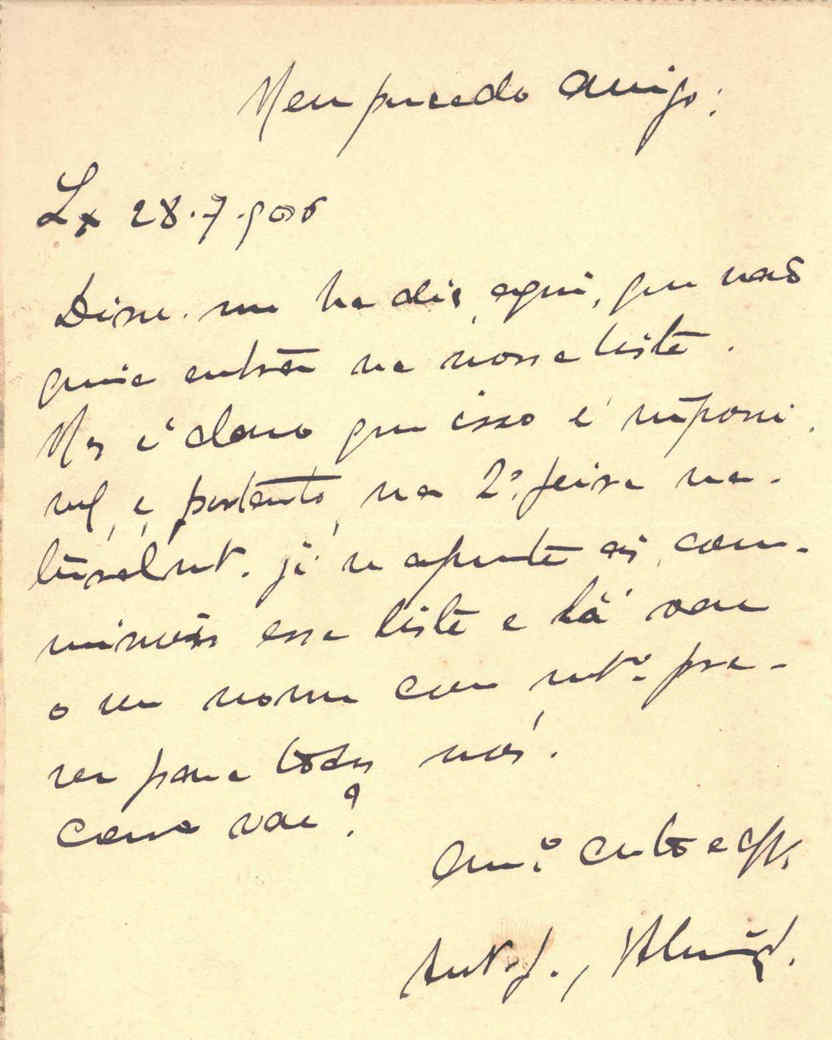 Meu presado Amigo:
Lx 28.7.906
Disse-me ha dias aqui, que não
queria entrar na nossa lista.
Mas é claro que isso é impossi-
vel, e portanto, na 2ª feira na-
já se apresenta
essa lista e lá vae
o seu nome com mtº pra-
ser para todos nós.
Como vae?
Amº
Antº J. d'Almeida.